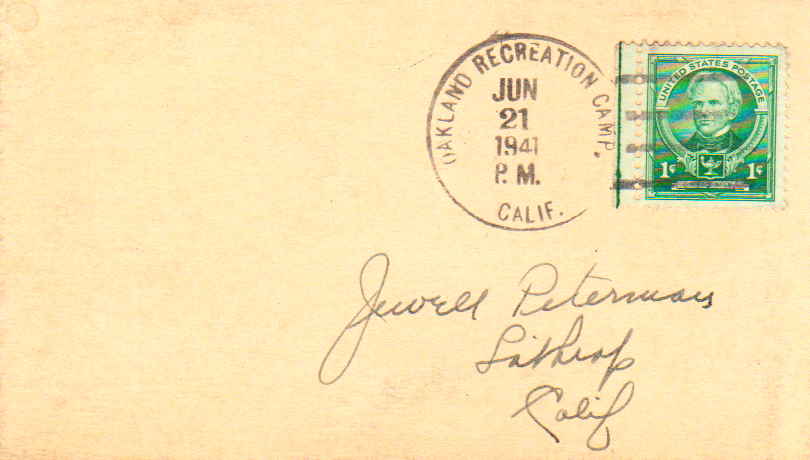 OAKLAND RECREATION CAMP.
JUN
21
1941
P. M.
CALIF.
UNITED STATES POSTAGE
1¢ 1¢
Jewell Peterman
Lathrop
Calif